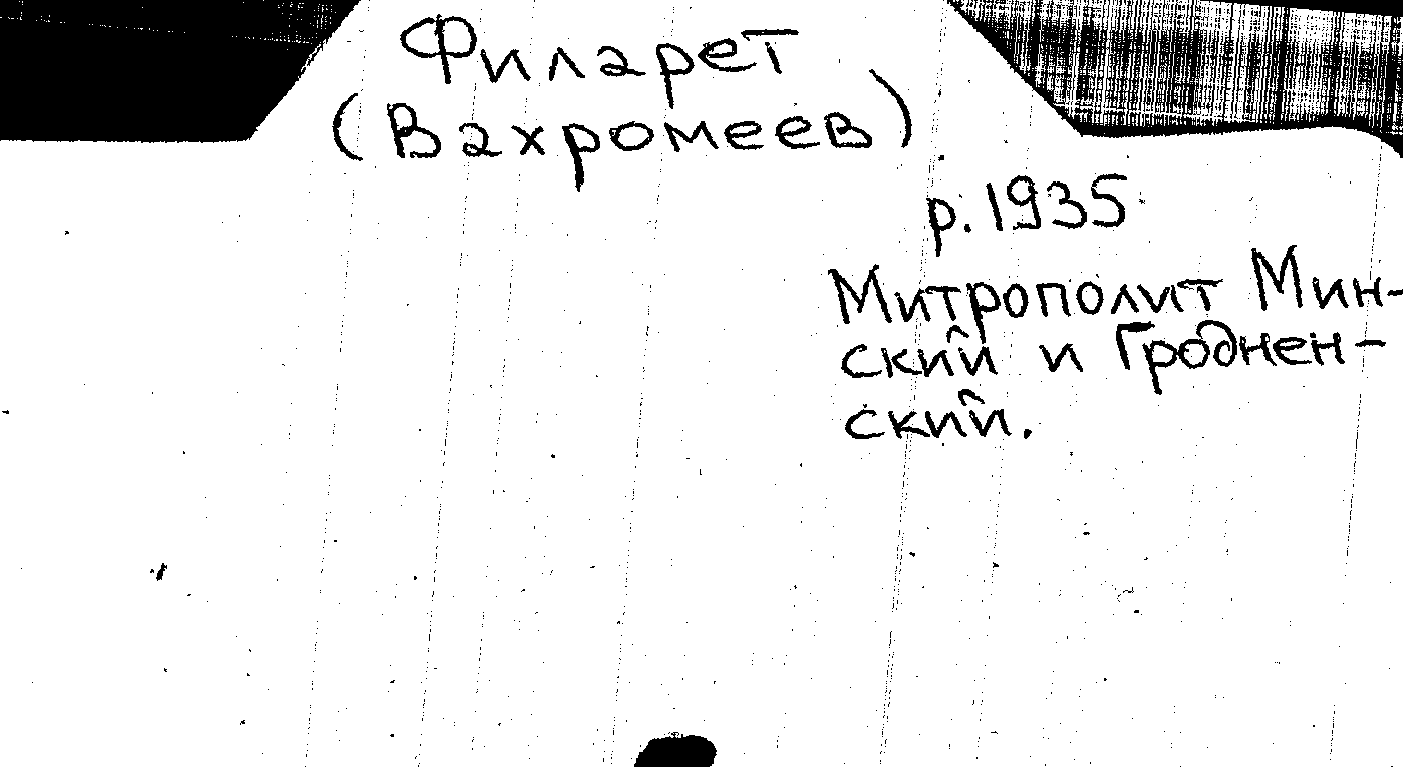 Филарет
(Вахромеев)
р. 1935
Митрополит Мин-
ский и Гроднен-
ский.